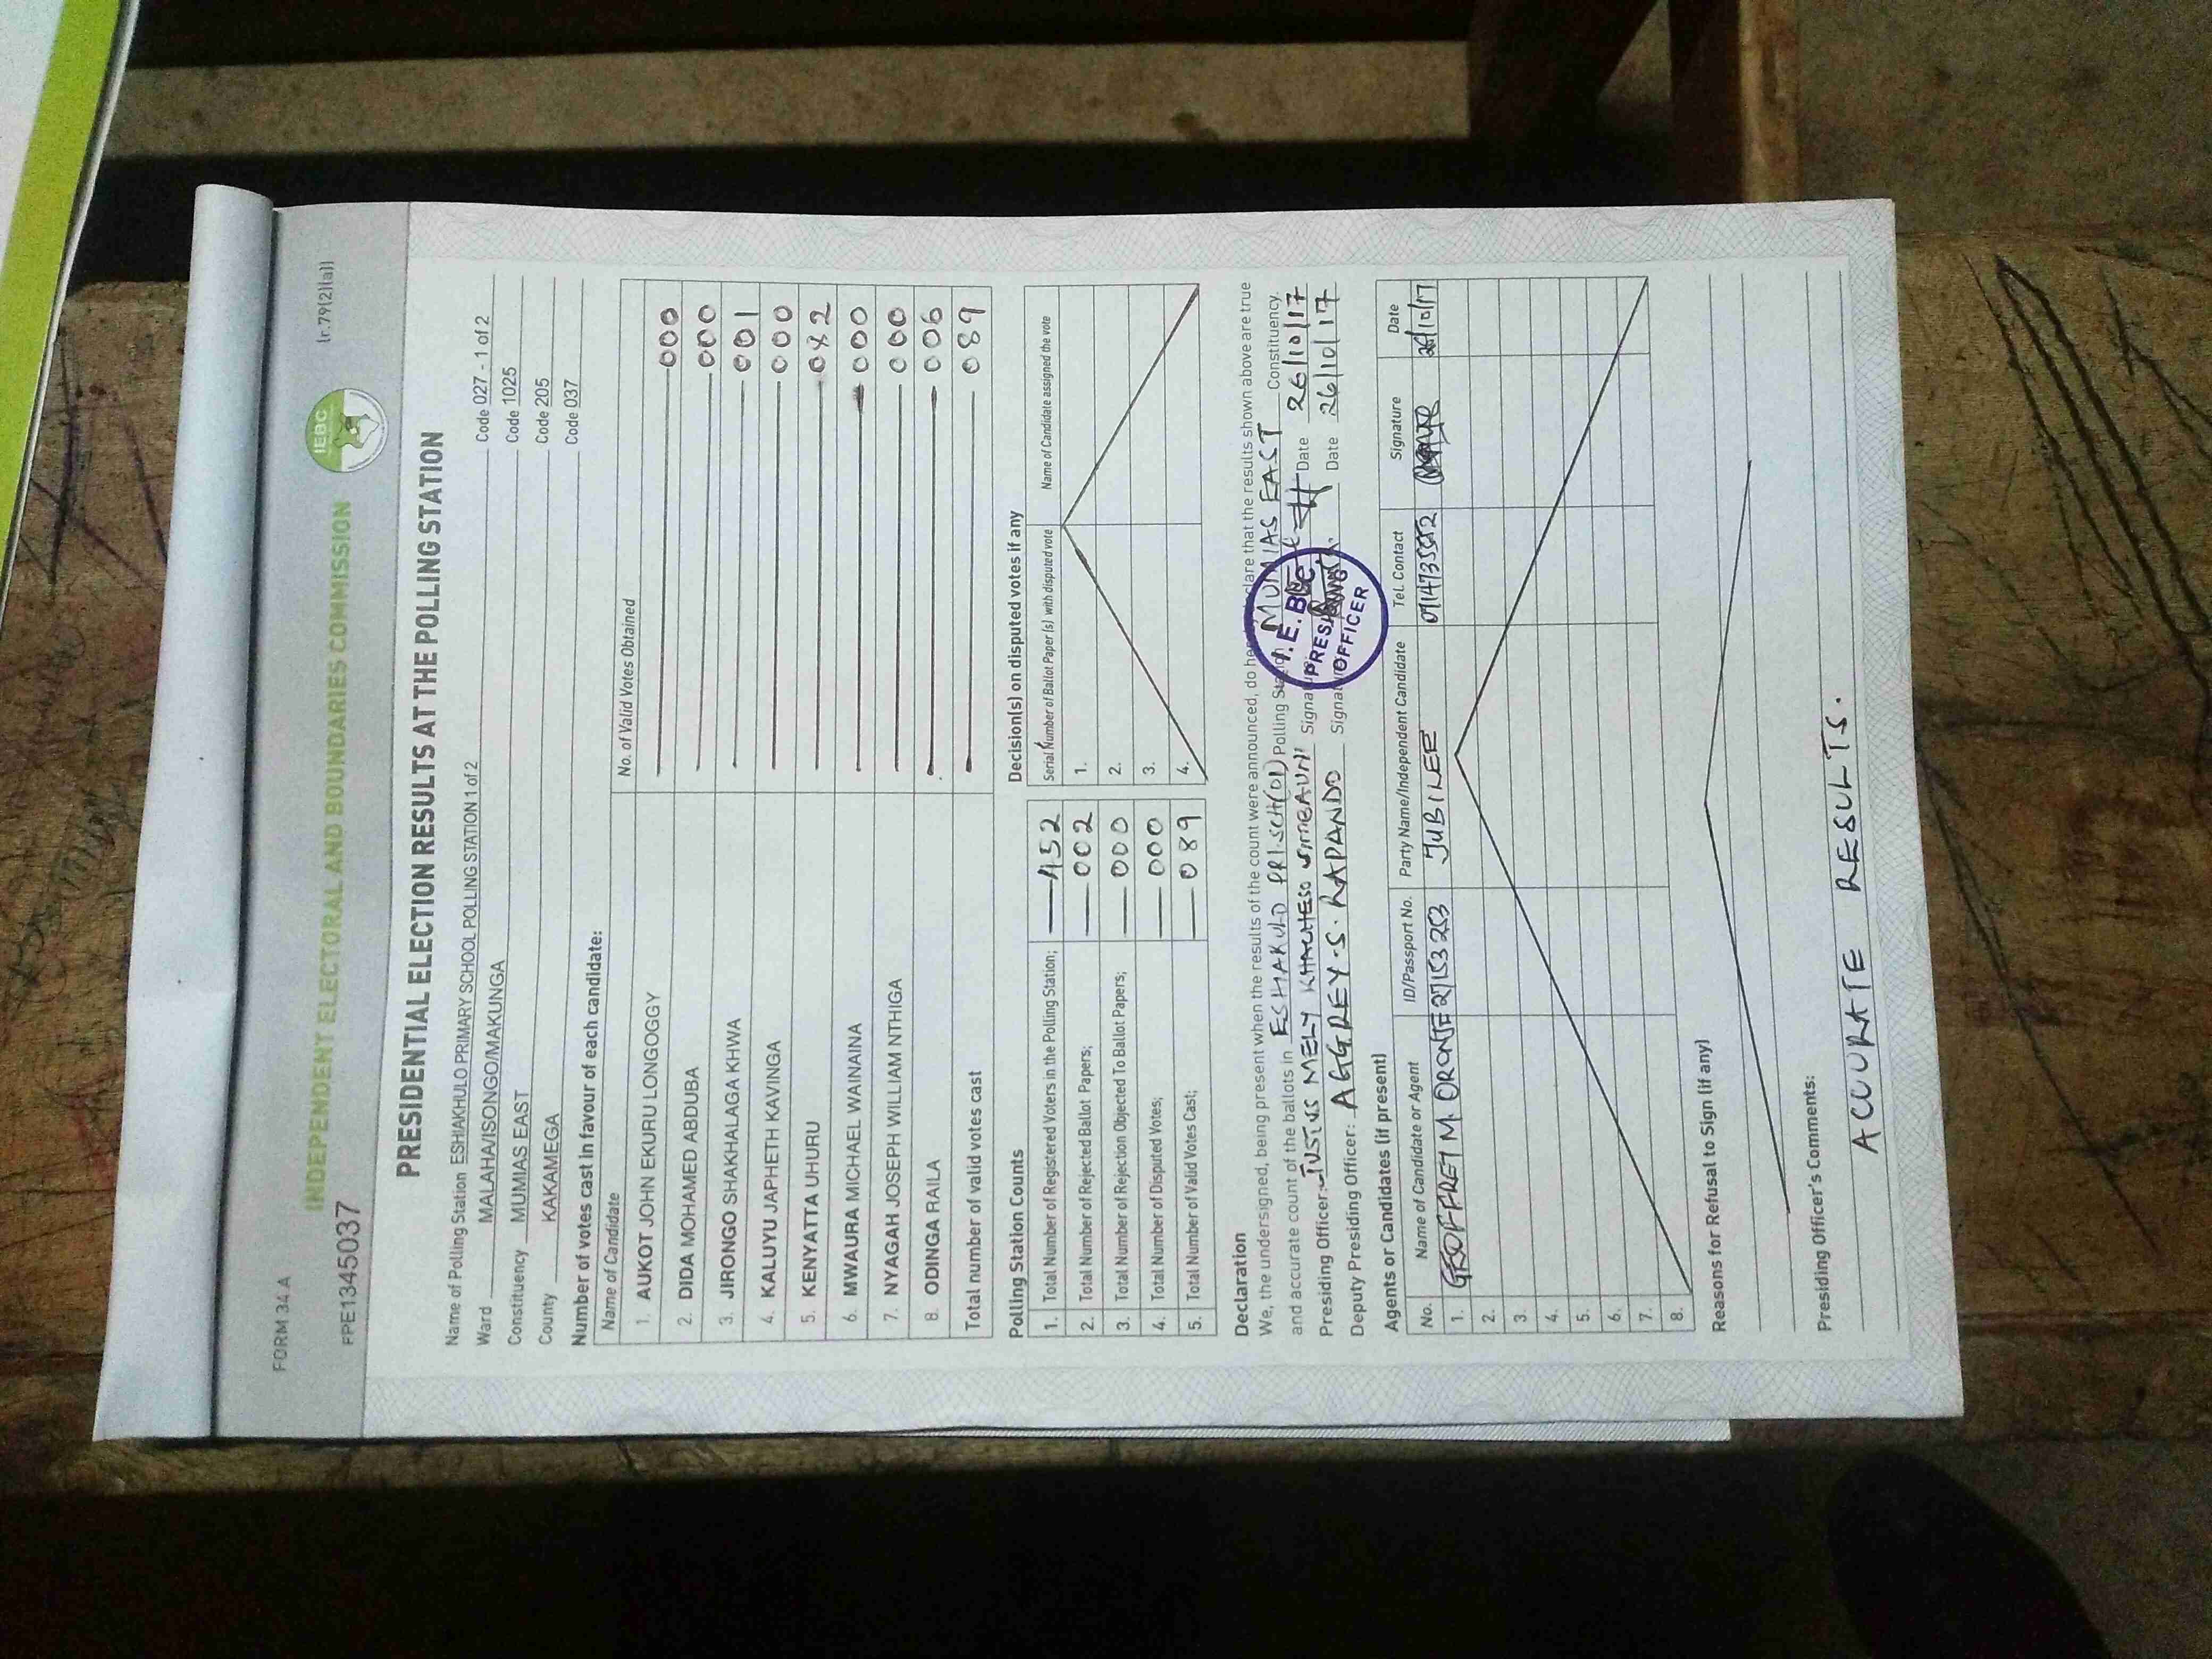 FORM 34 A
(r.79(2)(a))
IEBC
INDEPENDENT ELECTORAL AND BOUNDARIES COMMISSION
FPE1345037
PRESIDENTIAL ELECTION RESULTS AT THE POLLING STATION
Name of Polling Station ESHIAKHULO PRIMARY SCHOOL POLLING STATION 1 of 2 Code 027 - 1 of 2
Ward MALAHA/ISONGO/MAKUNGA Code 1025
Constituency MUMIAS EAST Code 205
County KAKAMEGA Code 037
Number of votes cast in favour of each candidate:
Name of Candidate No. of Valid Votes Obtained
1. AUKOT JOHN EKURU LONGOGGY 000
2. DIDA MOHAMED ABDUBA 000
3. JIRONGO SHAKHALAGA KHWA 001
4. KALUYU JAPHETH KAVINGA 000
5. KENYATTA UHURU 082
6. MWAURA MICHAEL WAINAINA 000
7. NYAGAH JOSEPH WILLIAM NTHIGA 000
8. ODINGA RAILA 006
Total number of valid votes cast 089
Polling Station Counts Decision(s) on disputed votes if any
Serial Number of Ballot Paper (s) with disputed vote Name of Candidate assigned the vote
1. Total Number of Registered Voters in the Polling Station; 452 1.
2. Total Number of Rejected Ballot Papers; 002 2.
3. Total Number of Rejection Objected To Ballot Papers; 000 3.
4. Total Number of Disputed Votes; 000 4.
5. Total Number of Valid Votes Cast; 089
Declaration
We, the undersigned, being present when the results of the count were announced, do hereby declare that the results shown above are true
and accurate count of the ballots in ESHIAKULO PRI.SCH(01) Polling Station MUMIAS EAST Constituency.
Presiding Officer: JUSTUS MELY Signature Date 26/10/17
Deputy Presiding Officer: AGGREY.S. RAPANDO Signature Date 26/10/17
I.E.B.C
PRESIDING
OFFICER
Agents or Candidates (if present)
No. Name of Candidate or Agent ID/Passport No. Party Name/Independent Candidate Tel. Contact Signature Date
1. GEOFFREY M. 27153253 JUBILEE 26/10/17
2.
3.
4.
5.
6.
7.
8.
Reasons for Refusal to Sign (if any)
Presiding Officer's Comments:
ACCURATE RESULTS.